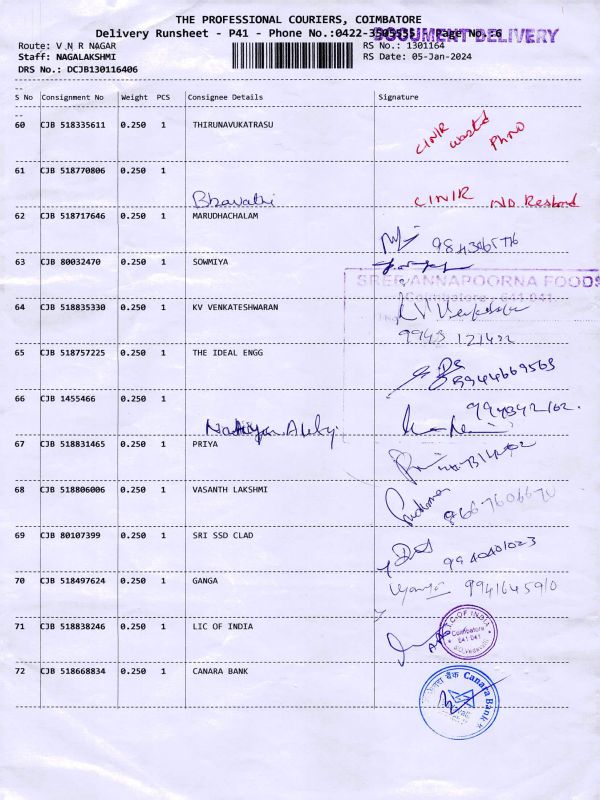 THE PROFESSIONAL COURIERS, COIMBATORE
Delivery Runsheet - P41 - Phone No.:0422-3505555 Page No.:6
DOCUMENT DELIVERY
Route: V N R NAGAR
RS No.: 1301164
Staff: NAGALAKSHMI
RS Date: 05-Jan-2024
DRS No.: DCJB130116406
S No Consignment No Weight PCS Consignee Details Signature
60 CJB 518335611 0.250 1 THIRUNAVUKATRASU
61 CJB 518770806 0.250 1
Bhavathi
NO Respond
62 CJB 518717646 0.250 1 MARUDHACHALAM
63 CJB 80032470 0.250 1 SOWMIYA
SREE ANNAPOORNA FOODS
Coimbatore - 641 041
64 CJB 518835330 0.250 1 KV VENKATESHWARAN
65 CJB 518757225 0.250 1 THE IDEAL ENGG
66 CJB 1455466 0.250 1
67 CJB 518831465 0.250 1 PRIYA
68 CJB 518806006 0.250 1 VASANTH LAKSHMI
69 CJB 80107399 0.250 1 SRI SSD CLAD
9940401023
70 CJB 518497624 0.250 1 GANGA
9941645910
71 CJB 518838246 0.250 1 LIC OF INDIA
Coimbatore
641 041
72 CJB 518668834 0.250 1 CANARA BANK
Canara Bank